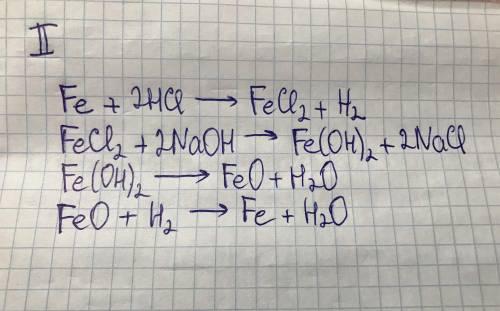 II
Fe + 2HCl → FeCl₂ + H₂
FeCl₂ + 2NaOH → Fe(OH)₂ + 2NaCl
Fe(OH)₂ → FeO + H₂O
FeO + H₂ → Fe + H₂O